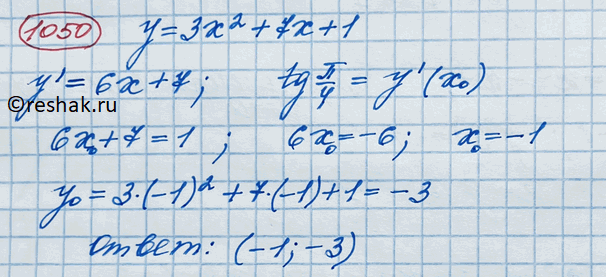 1050 y = 3x² + 7x + 1
y' = 6x + 7; tg π/4 = y'(x₀)
©reshak.ru
6x₀ + 7 = 1; 6x₀ = -6; x₀ = -1
y₀ = 3·(-1)² + 7·(-1) + 1 = -3
Ответ: (-1; -3)